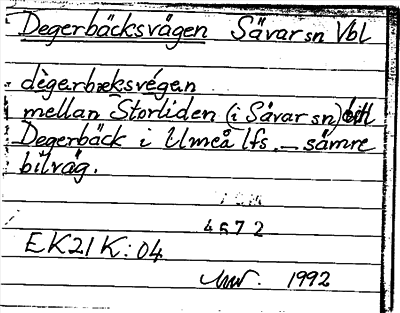 Degerbäcksvägen Sävar sn Vbl
dègərbæksvé̜gən
mellan Storliden (i Sävar sn) till
Degerbäck i Umeå lfs. – sämre
bilväg.
4572
EK21K:04
1992